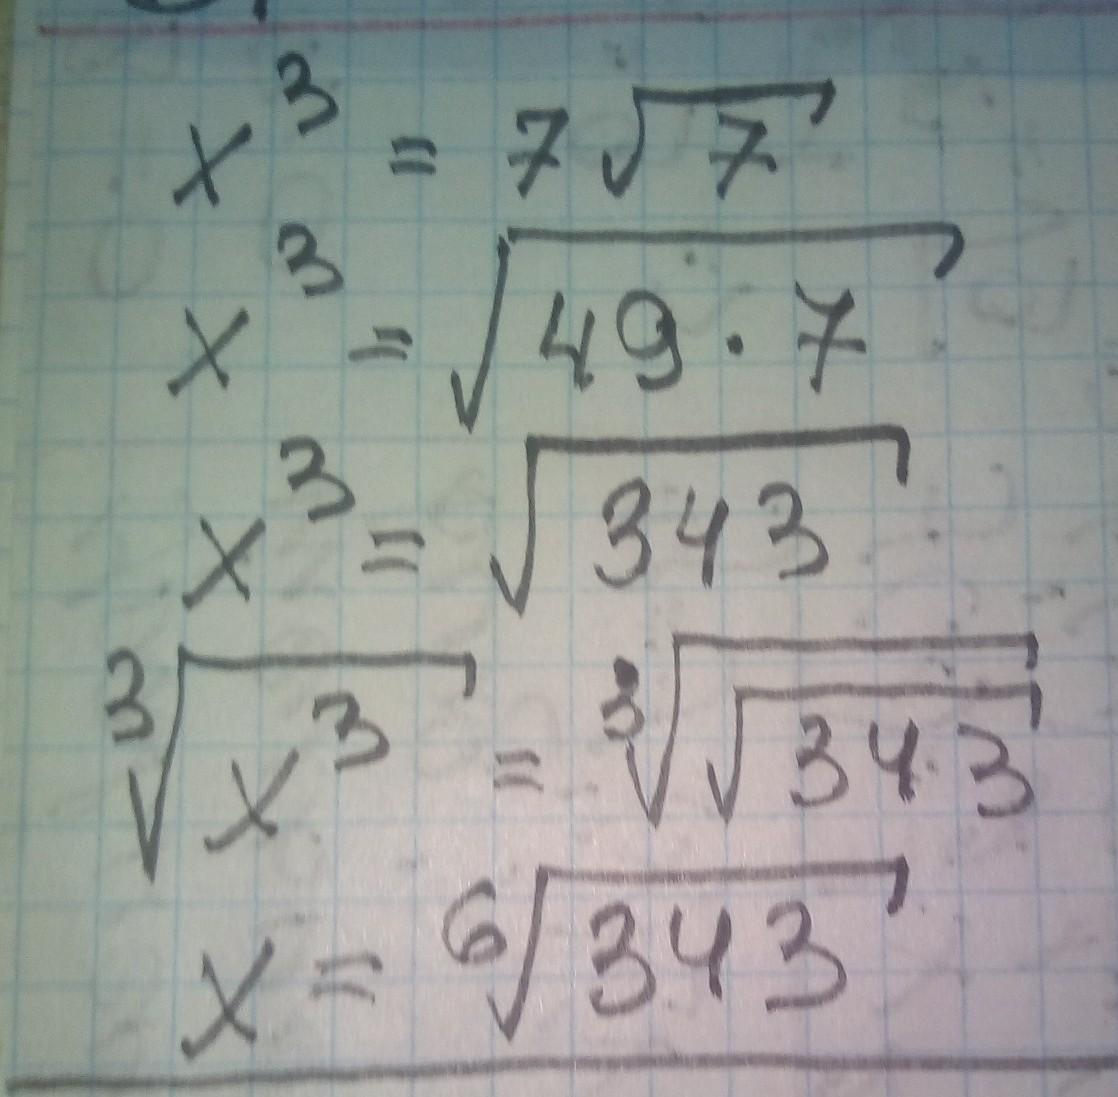 x³ = 7√7
x³ = √49 · 7
x³ = √343
³√x³ = ³√√343
x = ⁶√343